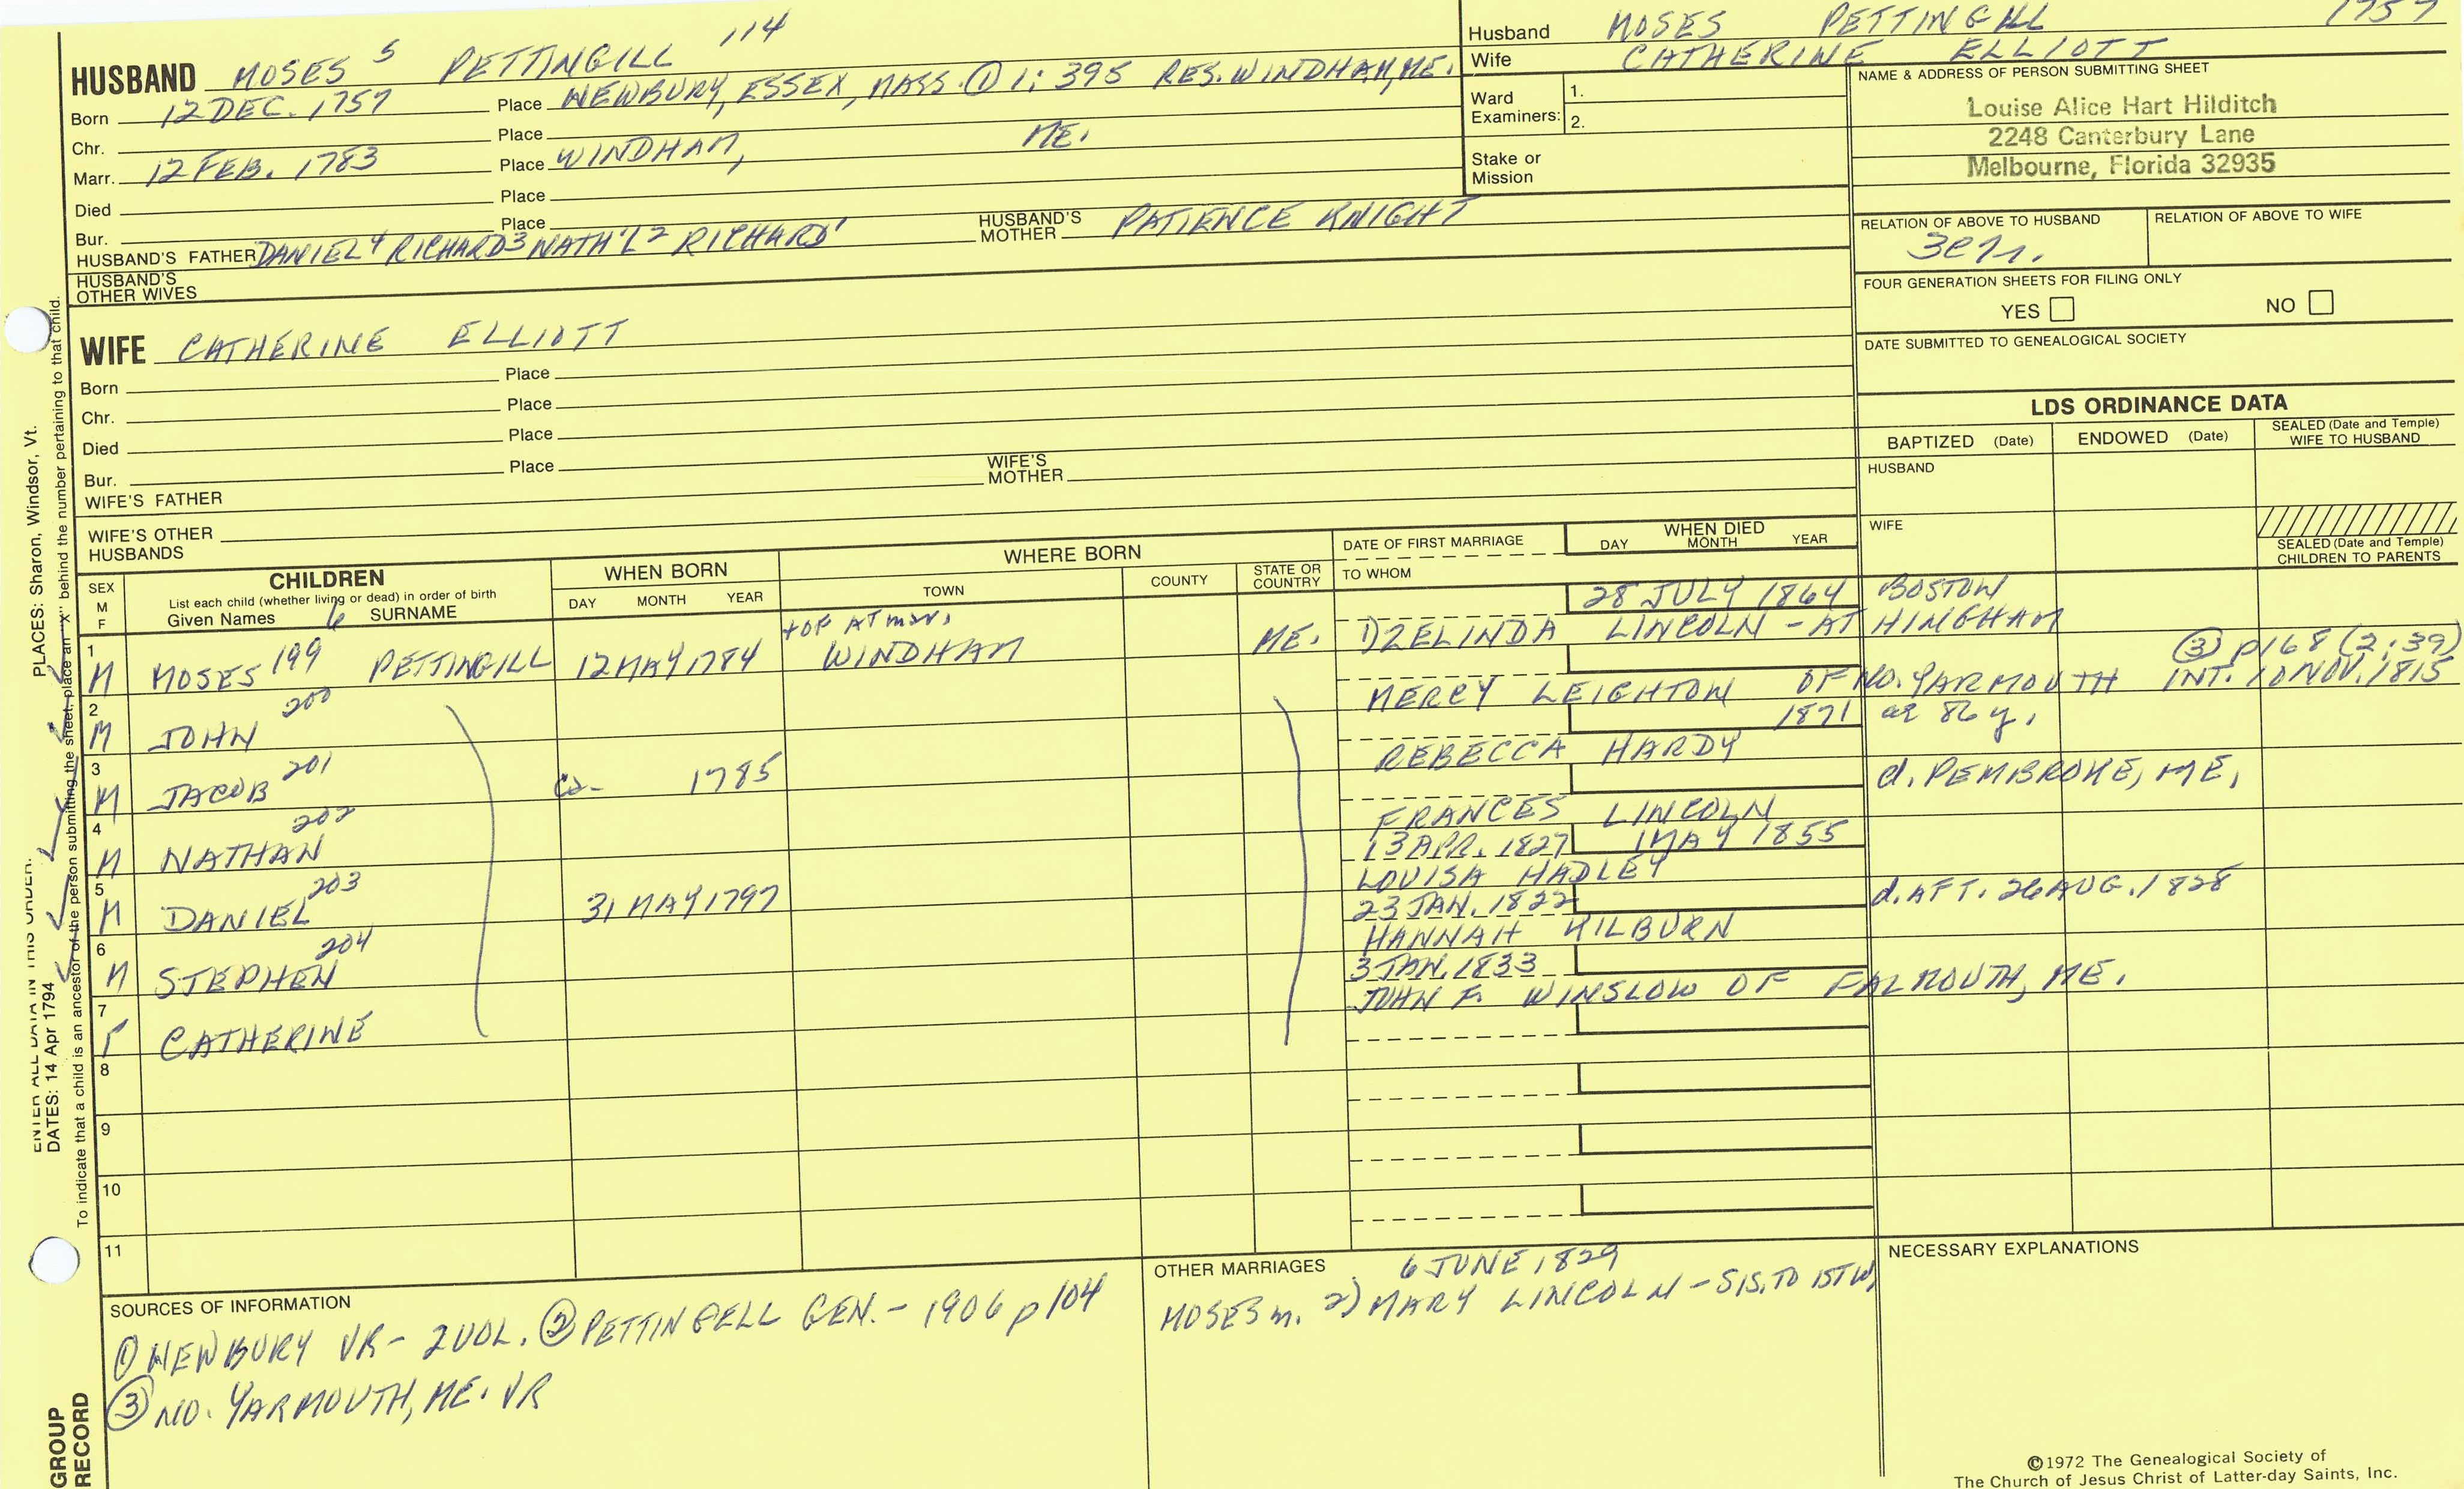 HUSBAND MOSES 5 PETTINGILL 114
Born 12 DEC. 1757 Place NEWBURY, ESSEX, MASS. ① 1: 395 RES. WINDHAM, ME.
Chr. Place
Marr. 12 FEB. 1783 Place WINDHAM, ME.
Died Place
Bur. Place
HUSBAND'S FATHER DANIEL 4 RICHARD 3 NATH'L 2 RICHARD 1 HUSBAND'S MOTHER PATIENCE KNIGHT
HUSBAND'S OTHER WIVES
Husband MOSES PETTINGILL 1757
Wife CATHERINE ELLIOTT
Ward Examiners: 1.
2.
Stake or Mission
NAME & ADDRESS OF PERSON SUBMITTING SHEET
Louise Alice Hart Hilditch
2248 Canterbury Lane
Melbourne, Florida 32935
RELATION OF ABOVE TO HUSBAND RELATION OF ABOVE TO WIFE
FOUR GENERATION SHEETS FOR FILING ONLY
YES NO
DATE SUBMITTED TO GENEALOGICAL SOCIETY
WIFE CATHERINE ELLIOTT
Born Place
Chr. Place
Died Place
Bur. Place
WIFE'S FATHER WIFE'S MOTHER
WIFE'S OTHER HUSBANDS
LDS ORDINANCE DATA
BAPTIZED (Date) ENDOWED (Date) SEALED (Date and Temple) WIFE TO HUSBAND
HUSBAND
WIFE
SEALED (Date and Temple) CHILDREN TO PARENTS
SEX M F
CHILDREN
List each child (whether living or dead) in order of birth
Given Names 6 SURNAME
WHEN BORN
DAY MONTH YEAR
WHERE BORN
TOWN COUNTY STATE OR COUNTRY
DATE OF FIRST MARRIAGE
TO WHOM
WHEN DIED
DAY MONTH YEAR
1 M MOSES 199 PETTINGILL 12 MAY 1784 + OF AT MAR. WINDHAM ME. 28 JULY 1864 BOSTON
1) ZELINDA LINCOLN - AT HINGHAM
2 M JOHN 200 MERCY LEIGHTON OF NO. YARMOUTH INT. 10 NOV. 1815 ③ p168 (2:39)
3 M JACOB 201 ca. 1785 1871 ae 86 y.
REBECCA HARDY
4 M NATHAN 202 d. PEMBROKE, ME.
FRANCES LINCOLN
5 M DANIEL 203 31 MAY 1797 13 APR. 1827 1 MAY 1855
LOUISA HADLEY
6 M STEPHEN 204 23 JAN. 1822 d. AFT. 26 AUG. 1828
HANNAH KILBURN
7 F CATHERINE 3 JAN. 1833
JOHN F. WINSLOW OF FALMOUTH, ME.
8
9
10
11
SOURCES OF INFORMATION
① NEWBURY VR - 2 VOL. ② PETTINGELL GEN. - 1906 p 104
③ NO. YARMOUTH, ME. VR
OTHER MARRIAGES 6 JUNE 1829
MOSES m. 2) MARY LINCOLN - SIS. TO 1ST W.
NECESSARY EXPLANATIONS
©1972 The Genealogical Society of
The Church of Jesus Christ of Latter-day Saints, Inc.
ENTER ALL DATA IN THIS ORDER:
PLACES: Sharon, Windsor, Vt.
DATES: 14 Apr 1794
To indicate that a child is an ancestor of the person submitting the sheet, place an "X" behind the number pertaining to that child.
GROUP
RECORD